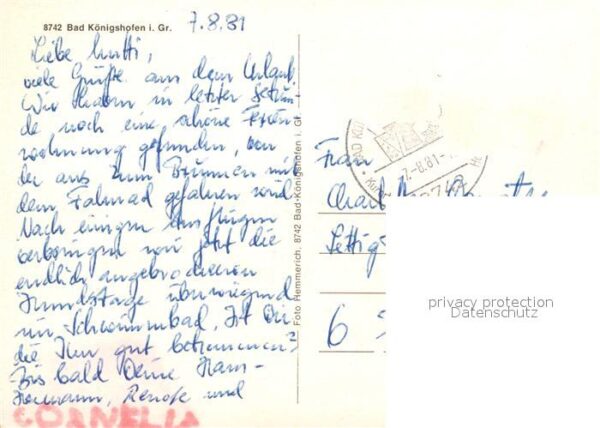 8742 Bad Königshofen i. Gr.
7.8.81
Liebe Mutti,
viele Grüße aus dem Urlaub.
Wir haben in letzter Sekun-
de noch eine schöne Ferien-
wohnung gefunden, von
der aus zum Brunnen mit
dem Fahrrad gefahren wird.
Nach einigen Ausflügen
verbringen wir jetzt die
endlich angebrochenen
Hundstage überwiegend
im Schwimmbad. Ist Dir
die Kur gut bekommen?
Bis bald Deine Hans-
Hermann, Renate und
CORNELIA
Foto Hemmerich, 8742 Bad-Königshofen i. Gr.
-7.-8.81-
Frau
6
privacy protection
Datenschutz